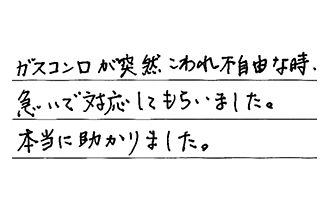 ガスコンロが突然こわれ不自由な時、
急いで対応してもらいました。
本当に助かりました。